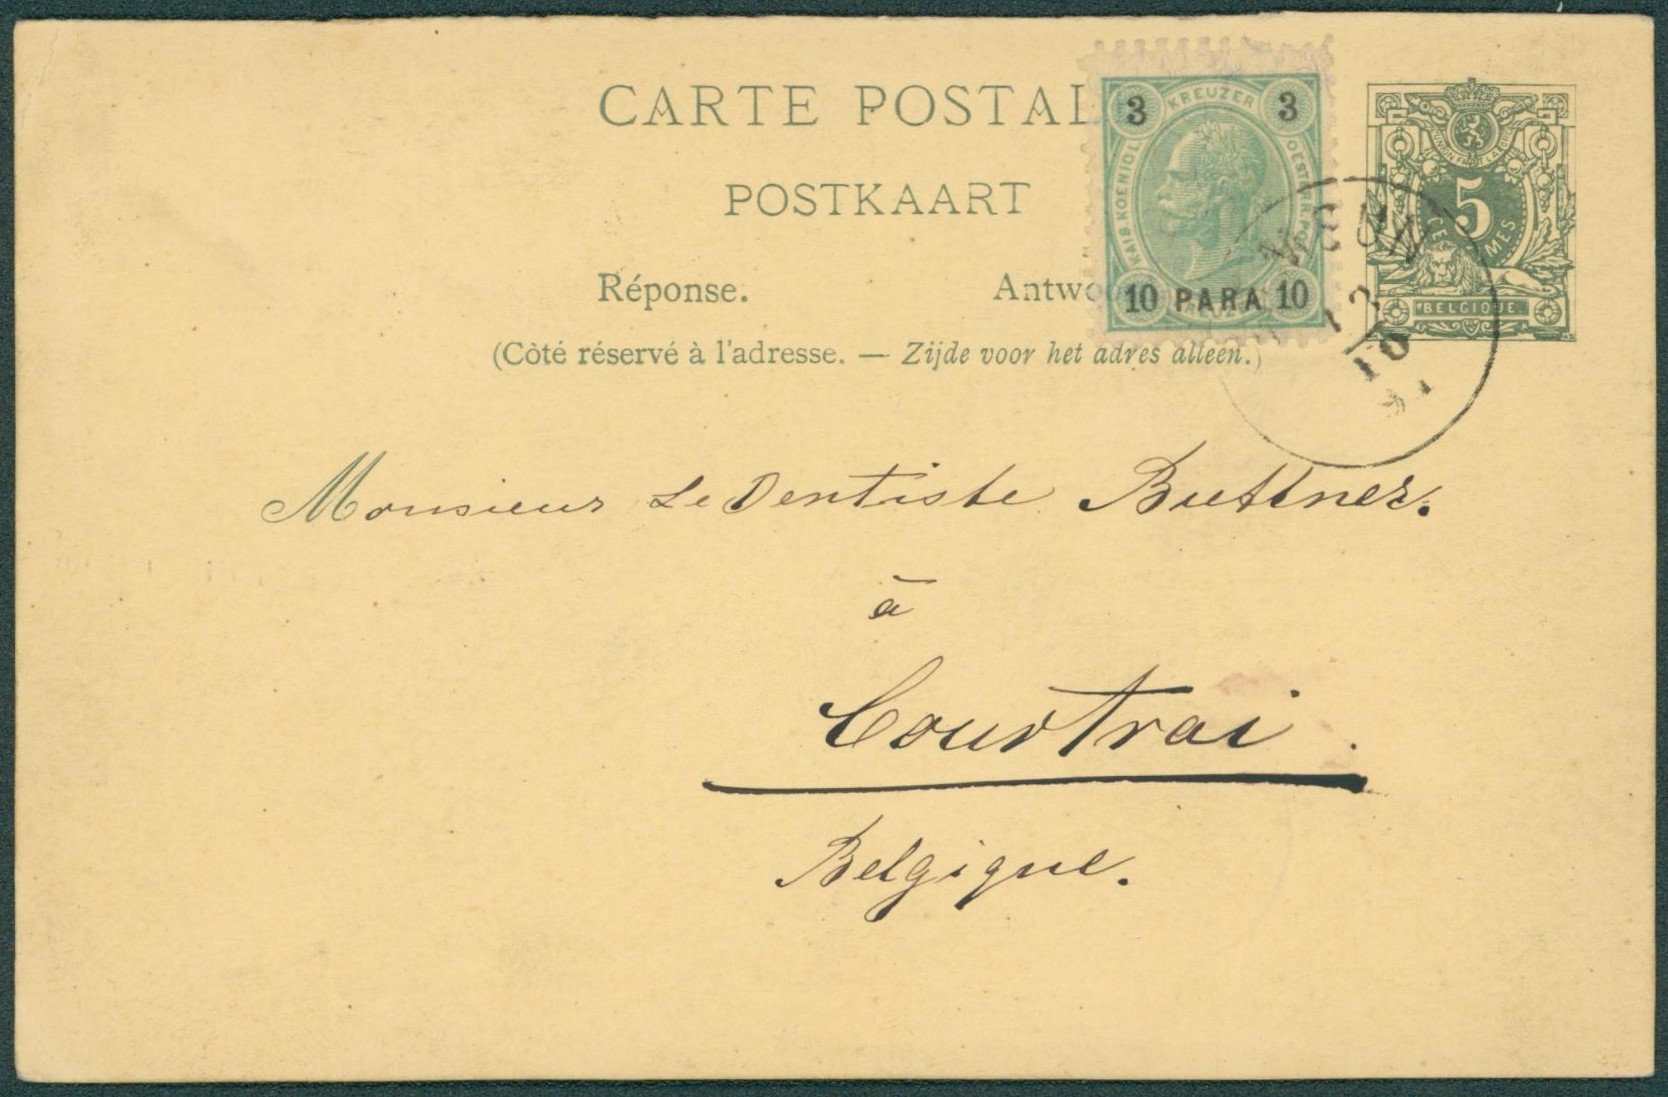 CARTE POSTAL
POSTKAART
Réponse. Antwo
(Côté réservé à l'adresse. — Zijde voor het adres alleen.)
3 KREUZER 3
10 PARA 10
5
BELGIQUE
10
Monsieur Le Dentiste Buttner.
à
Courtrai.
Belgique.